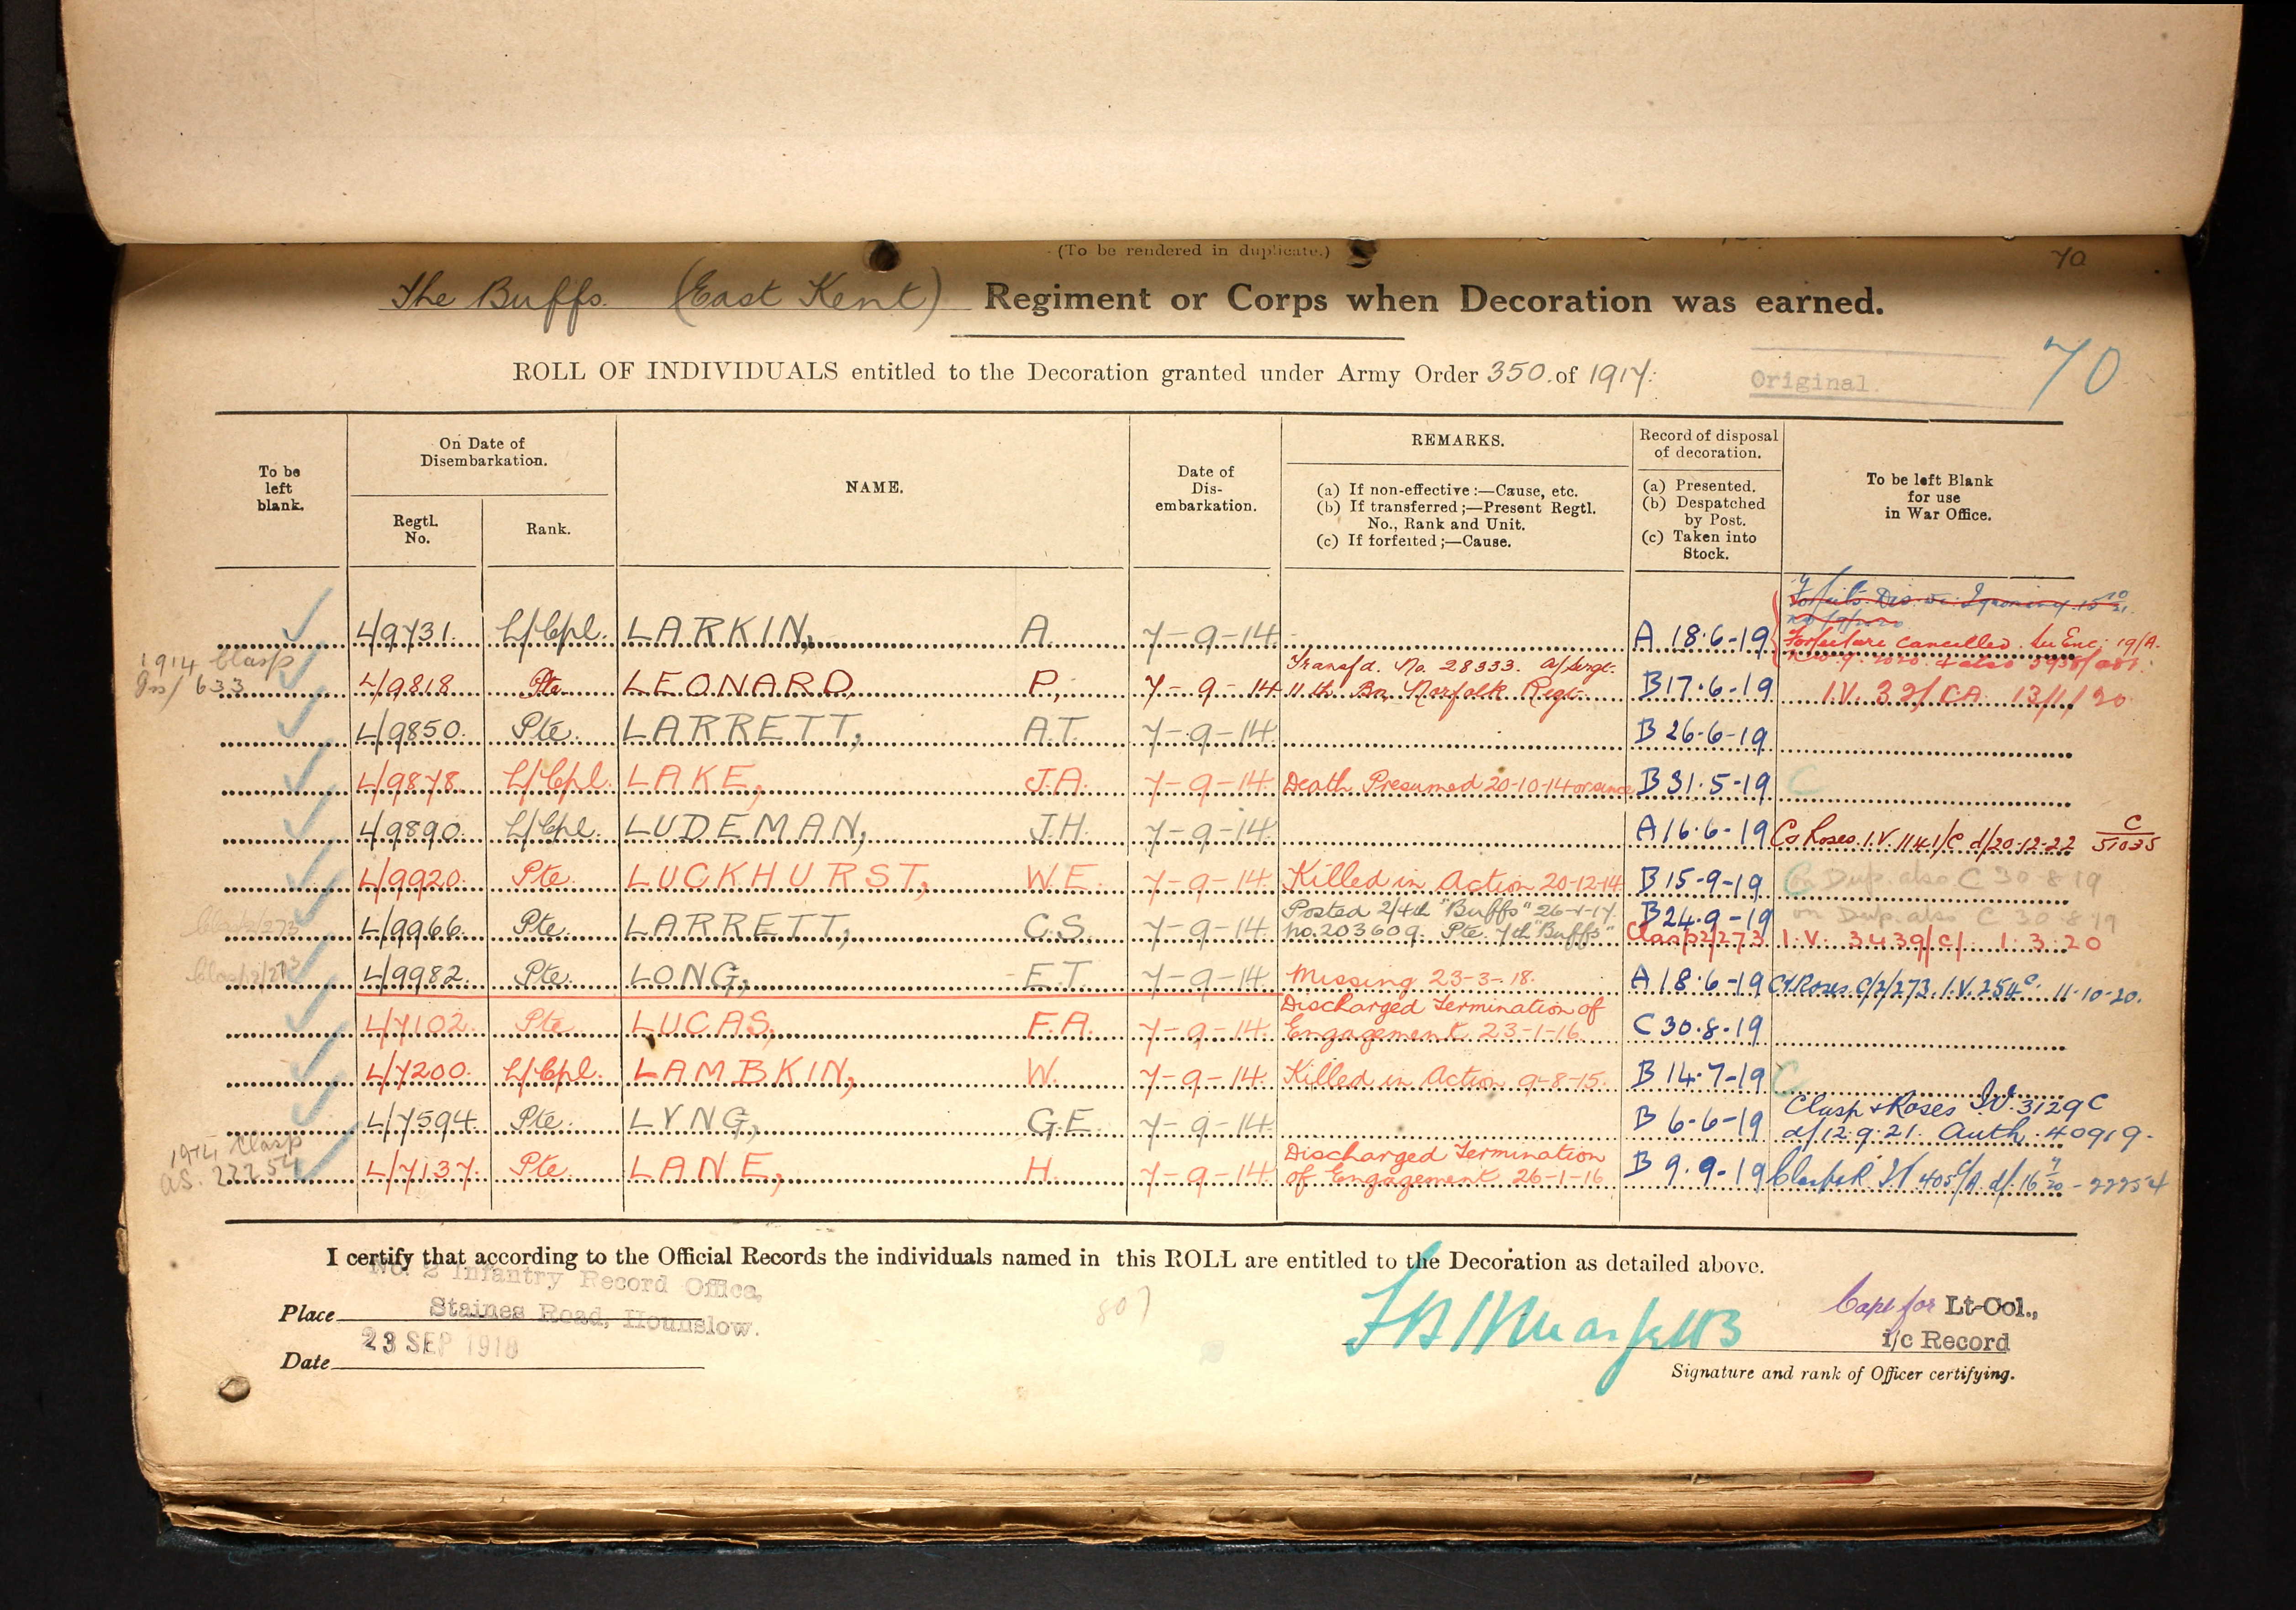 (To be rendered in duplicate.)
70
The Buffs. (East Kent) Regiment or Corps when Decoration was earned.
70
ROLL OF INDIVIDUALS entitled to the Decoration granted under Army Order 350. of 1917.
Original.
To be left blank.
On Date of Disembarkation.
Regtl. No.
Rank.
NAME.
Date of Dis-embarkation.
REMARKS.
(a) If non-effective:—Cause, etc.
(b) If transferred;—Present Regtl. No., Rank and Unit.
(c) If forfeited;—Cause.
Record of disposal of decoration.
(a) Presented.
(b) Despatched by Post.
(c) Taken into Stock.
To be left Blank for use in War Office.
L/9731. L/Cpl. LARKIN, A. 7-9-14. A 18.6-19 Forfeiture cancelled. 19/A.
1914 Clasp 633 L/9818 Pte LEONARD, P. 7-9-14 Transfd. No. 28333. a/Sergt. 11th Bn. Norfolk Regt. B 17.6-19 I.V. CA 13/1/20
L/9850. Pte. LARRETT, A.T. 7-9-14. B 26-6-19
L/9878. L/Cpl. LAKE, J.A. 7-9-14. Death Presumed 20-10-14 or since B 31.5-19 C
L/9890. L/Cpl. LUDEMAN, J.H. 7-9-14. A 16.6-19 Roses. I.V. 1141/C d/20-12-22 C/51035
L/9920. Pte. LUCKHURST, W.E. 7-9-14. Killed in Action 20-12-14 B 15-9-19 C on Dup. also C 30-8-19
Clasp 2/273 L/9966. Pte. LARRETT, C.S. 7-9-14. Posted 2/4th "Buffs" 26-1-17. No. 203609. Pte. 7th "Buffs" B 24.9-19 Clasp 2/273 on Dup. also C 30-8-19 I.V. 3439/C/ 1.3.20
Clasp 2/273 L/9982. Pte. LONG, E.T. 7-9-14. Missing 23-3-18. A 18.6-19 C & Roses. C/2/273. I.V. 254 C. 11-10-20.
L/7102. Pte LUCAS, F.A. 7-9-14. Discharged Termination of Engagement 23-1-16 C 30.8-19
L/7200. L/Cpl. LAMBKIN, W. 7-9-14. Killed in Action 9-8-15. B 14.7-19 C
L/7594 Pte. LYNG, G.E. 7-9-14. B 6-6-19 Clasp & Roses I.V. 3129 C d/12.9.21. Auth. 40919.
1914 Clasp AS. 22254 L/7137. Pte. LANE, H. 7-9-14. Discharged Termination of Engagement 26-1-16 B 9.9-19 Clasp & R. IV 405/A. d/16 7/20 - 22254
I certify that according to the Official Records the individuals named in this ROLL are entitled to the Decoration as detailed above.
No. 2 Infantry Record Office,
Place Staines Road, Hounslow.
807
Capt for Lt-Col.,
i/c Record
Date 23 SEP 1919
Signature and rank of Officer certifying.